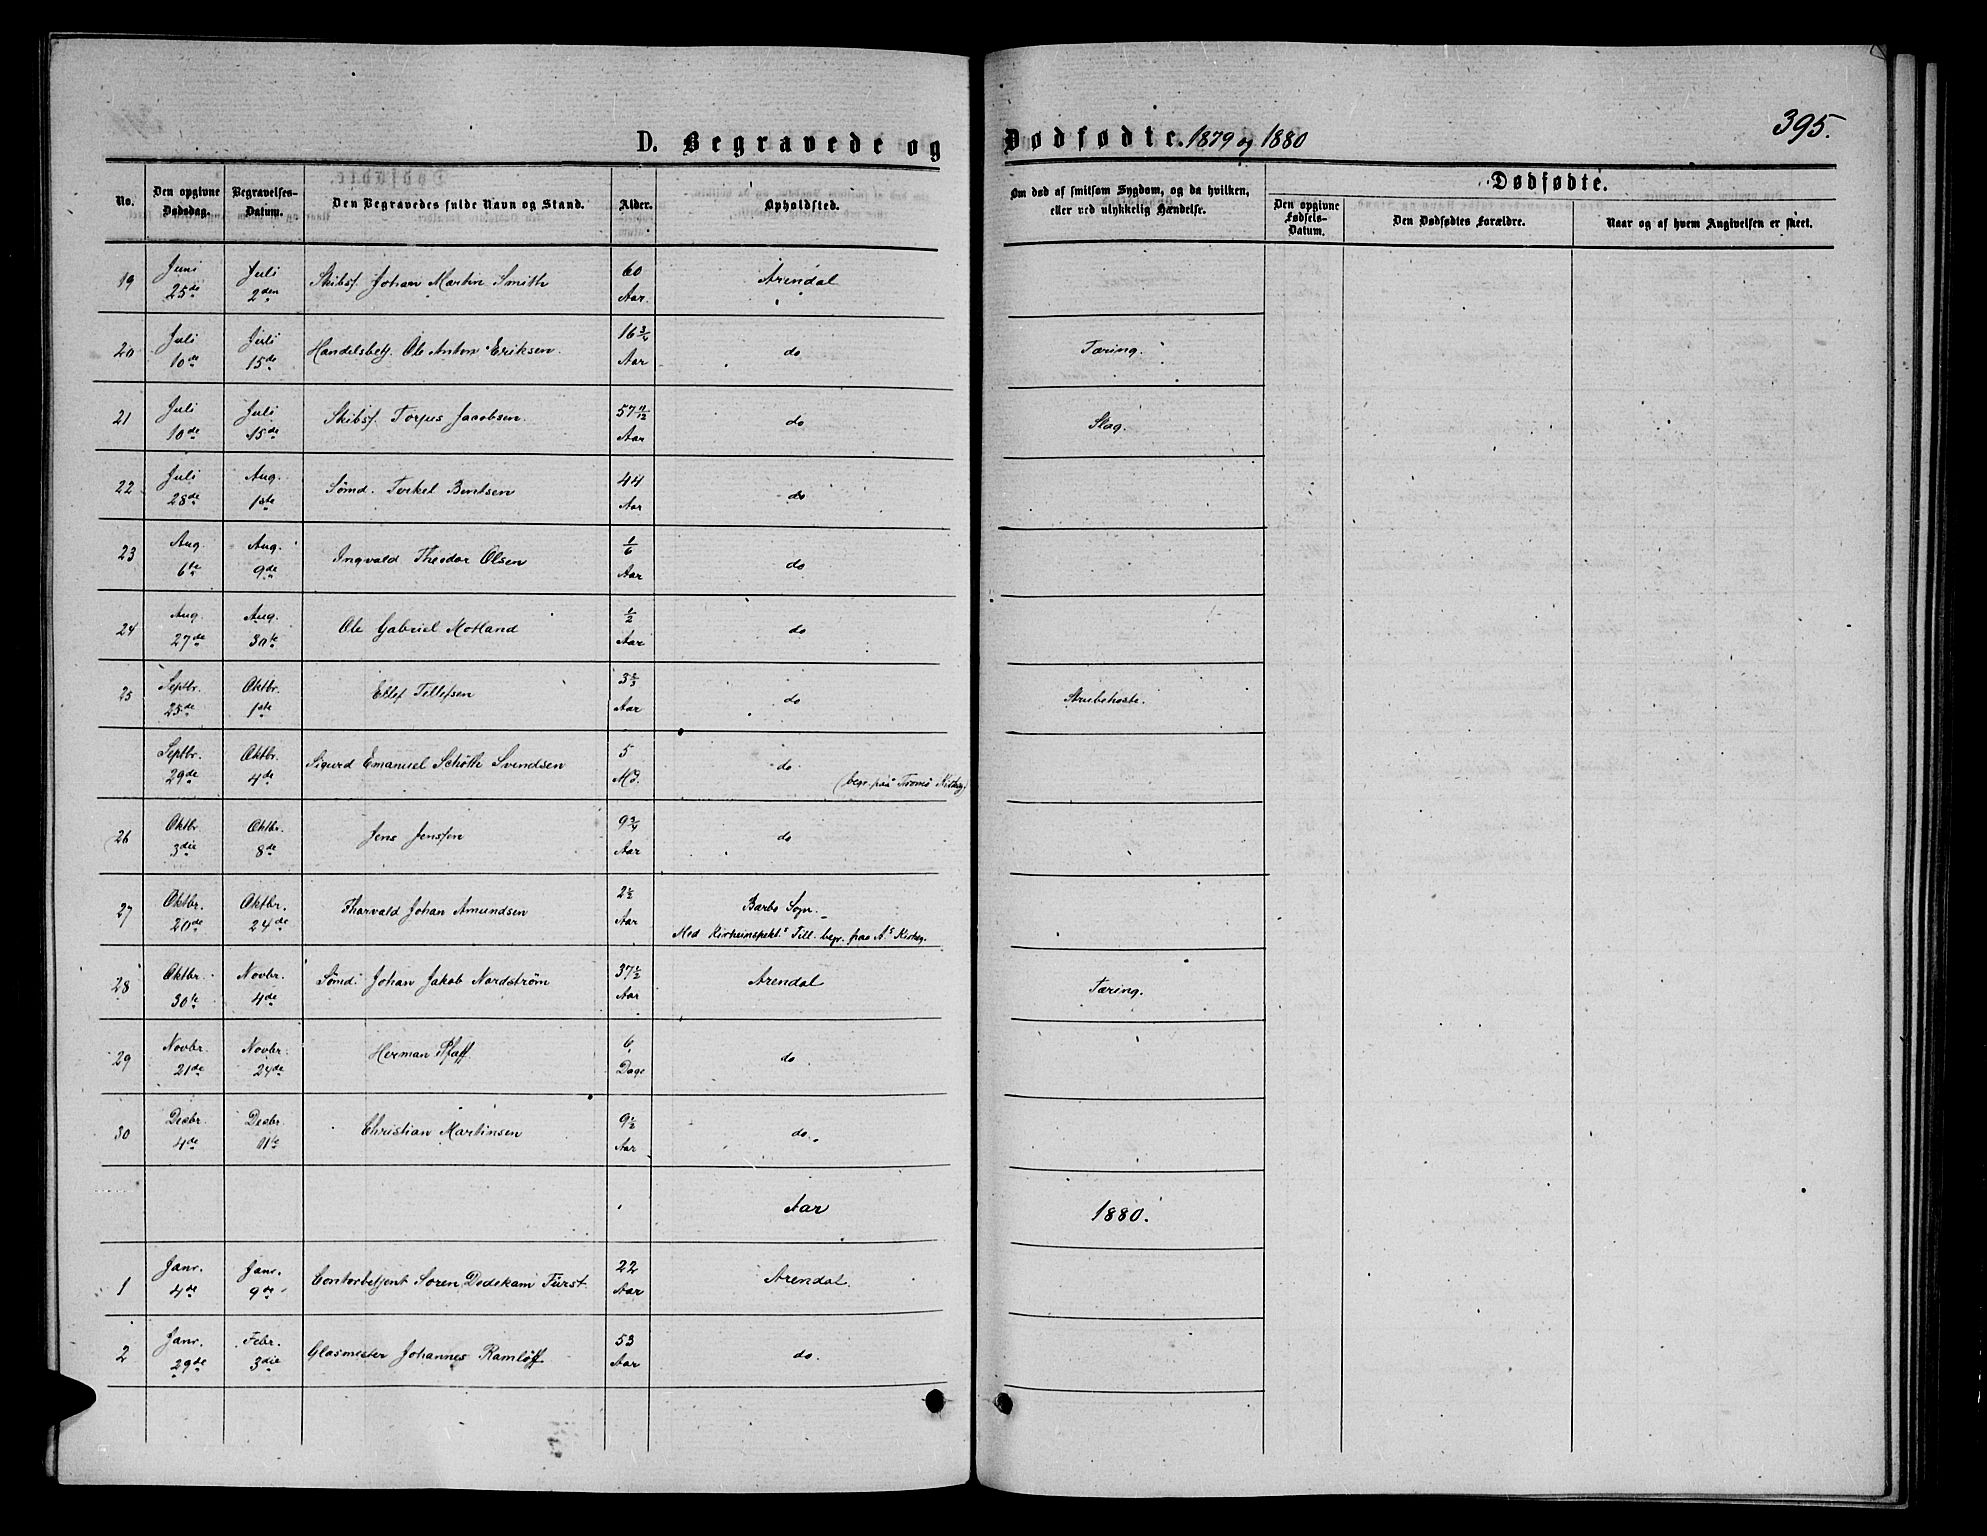 395.
D. Begravede og Dødfødte. 1879 og 1880
No. | Den opgivne Dødsdag. | Begravelses-Datum. | Den Begravedes fulde Navn og Stand. | Alder. | Opholdsted. | Om død af smitsom Sygdom, og da hvilken, eller ved ulykkelig Hændelse. | Dødfødte.
Den opgivne Fødsels-Datum. | Den Dødfødtes Forældre. | Naar og af hvem Angivelsen er skeet.
19 | Juni 25de | Juli 2den | Skibsf. Johan Martin Smith | 60 Aar. | Arendal
20 | Juli 10de | Juli 15de | Handelsbetj. Ole Anton Eriksen. | 16 3/4 Aar | do | Tæring.
21 | Juli 10de | Juli 15de | Skibsf. Torjus Jacobsen. | 57 11/12 Aar | do | Slag.
22 | Juli 28de | Aug. 1ste | Sømd. Terkel Bentsen | 44 Aar | do
23 | Aug. 6te | Aug. 9de | Ingvald Theodor Olsen | 1/6 Aar | do
24 | Aug. 27de | Aug. 30te | Ole Gabriel Motland | 1/2 Aar | do
25 | Septbr. 25de | Oktbr. 1ste | Ellef Tellefsen | 3 2/3 Aar | do | Strubehoste.
Septbr. 29de | Oktbr. 4de | Sigurd Emanuel Schøtte Svendsen | 5 Md. | do (begr. paa Tromø Kirkeg.)
26 | Oktbr 3die | Oktbr. 8de | Jens Jenssen | 9 3/4 Aar | do
27 | Oktbr. 20de | Oktbr. 24de | Tharvald Johan Amundsen | 2 1/2 Aar | Barbo Sogn. Med Kirkeinspekt.s Till. begr. paa A.s Kirkeg.
28 | Oktbr. 30te | Novbr. 4de | Sømd. Johan Jakob Nordstrøm | 37 1/2 Aar | Arendal | Tæring.
29 | Novbr. 21de | Novbr. 24de | Herman Pfaff | 6 Dage | do
30 | Decbr. 4de | Decbr. 11te | Christian Martinsen | 9 1/2 Aar | do.
Aar 1880.
1 | Janr. 4de | Janr. 9de | Contorbetjent Soren Dedekam Fürst | 22 Aar | Arendal.
2 | Janr. 29de | Febr. 3die | Glasmester Johannes Ramløff | 53 Aar | do.